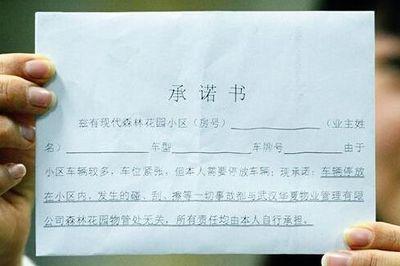 承诺书
兹有现代森林花园小区（房号）____________（业主姓
名）____________车型____________车牌号____________由于
小区车辆较多，车位紧张，但本人需要停放车辆；现承诺：车辆停放
在小区内，发生的碰、刮、擦等一切事故都与武汉华夏物业管理有限
公司森林花园物管处无关，所有责任均由本人自行承担。